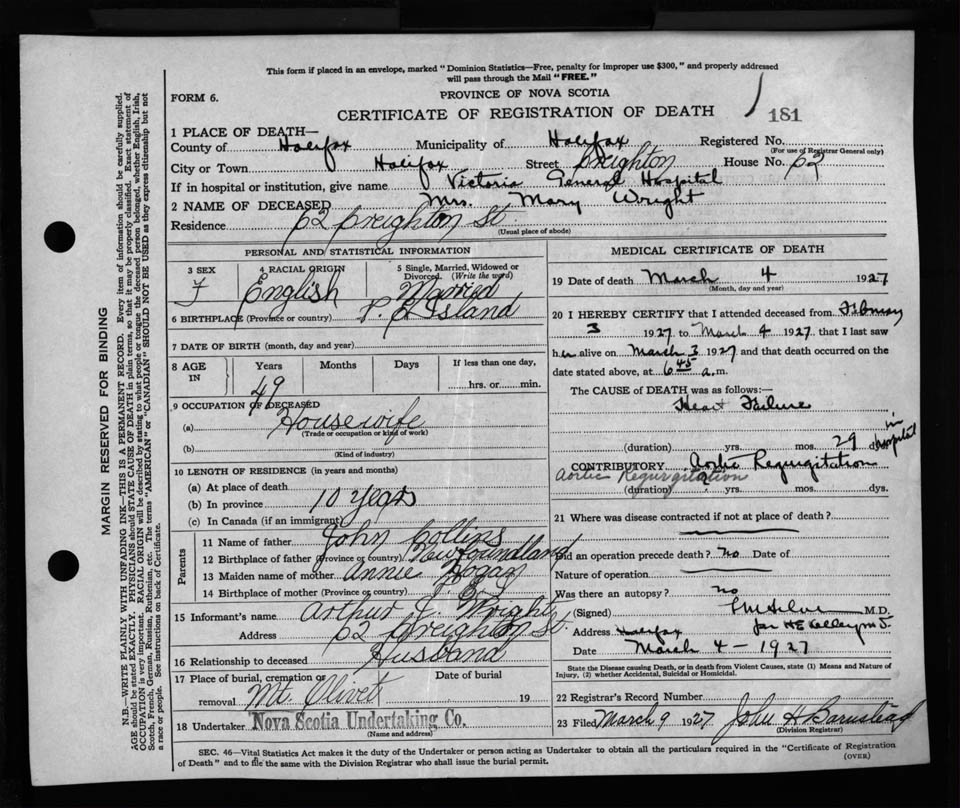 This form if placed in an envelope, marked "Dominion Statistics—Free, penalty for improper use $300," and properly addressed
will pass through the Mail "FREE."
FORM 6.
PROVINCE OF NOVA SCOTIA
CERTIFICATE OF REGISTRATION OF DEATH
181
1 PLACE OF DEATH—
County of Halifax Municipality of Halifax Registered No.
(For use of Registrar General only)
City or Town Halifax Street Creighton House No. 62
If in hospital or institution, give name Victoria General Hospital
2 NAME OF DECEASED Mrs. Mary Wright
Residence 62 Creighton St.
(Usual place of abode)
PERSONAL AND STATISTICAL INFORMATION
3 SEX 4 RACIAL ORIGIN 5 Single, Married, Widowed or Divorced. (Write the word)
F English Married
6 BIRTHPLACE (Province or country) P. E Island
7 DATE OF BIRTH (month, day and year)
8 AGE IN Years Months Days If less than one day,
49 hrs. or min.
9 OCCUPATION OF DECEASED
(a) Housewife
(Trade or occupation or kind of work)
(b)
(Kind of industry)
10 LENGTH OF RESIDENCE (in years and months)
(a) At place of death
(b) In province 10 Years
(c) In Canada (if an immigrant)
Parents
11 Name of father John Collins
12 Birthplace of father (Province or country) Newfoundland
13 Maiden name of mother Annie Hogan
14 Birthplace of mother (Province or country)
15 Informant's name Arthur J. Wright
Address 62 Creighton St.
16 Relationship to deceased Husband
17 Place of burial, cremation or removal Mt. Olivet Date of burial 19
18 Undertaker Nova Scotia Undertaking Co.
(Name and address)
MEDICAL CERTIFICATE OF DEATH
19 Date of death March 4 1927
(Month, day and year)
20 I HEREBY CERTIFY that I attended deceased from February
3 1927 to March 4 1927, that I last saw
her alive on March 3 1927 and that death occurred on the
date stated above, at 6 45 a.m.
The CAUSE OF DEATH was as follows:
Heart Failure
(duration) yrs. mos. 29 dys. in hospital
CONTRIBUTORY Aortic Regurgitation
Aortic Regurgitation
(duration) yrs. mos. dys.
21 Where was disease contracted if not at place of death?
Did an operation precede death? no Date of
Nature of operation
Was there an autopsy? no
(Signed) M.D.
Address Halifax for H E Kelley M.D.
Date March 4 — 1927
State the Disease causing Death, or in death from Violent Causes, state (1) Means and Nature of
Injury, (2) whether Accidental, Suicidal or Homicidal.
22 Registrar's Record Number
23 Filed March 9 1927 John H Barnstead
(Division Registrar)
SEC. 46—Vital Statistics Act makes it the duty of the Undertaker or person acting as Undertaker to obtain all the particulars required in the "Certificate of Registration
of Death" and to file the same with the Division Registrar who shall issue the burial permit.
(OVER)
MARGIN RESERVED FOR BINDING
N.B.—WRITE PLAINLY WITH UNFADING INK—THIS IS A PERMANENT RECORD. Every item of information should be carefully supplied.
AGE should be stated EXACTLY. PHYSICIANS should STATE CAUSE OF DEATH in plain terms, so that it may be properly classified. Exact statement of
OCCUPATION is very important. RACIAL ORIGIN will be described by stating to what people or tongue the deceased person belonged, whether English, Irish,
Scotch, French, German, Russian, Ruthenian, etc. The terms "AMERICAN" or "CANADIAN" SHOULD NOT BE USED as they express citizenship but not
a race or people. See instructions on back of Certificate.